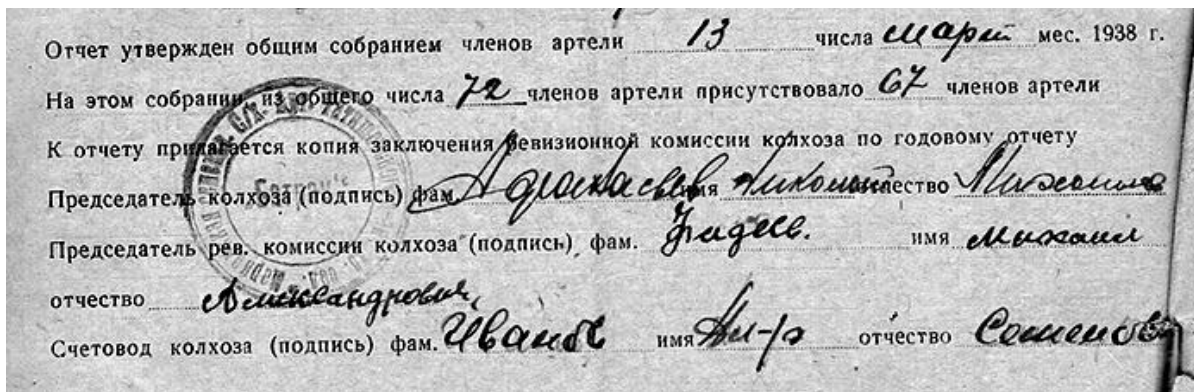 Отчет утвержден общим собранием членов артели 13 числа март мес. 1938 г.
На этом собрании, из общего числа 72 членов артели присутствовало 67 членов артели
К отчету прилагается копия заключения ревизионной комиссии колхоза по годовому отчету
Председатель колхоза (подпись) фам. имя Николай отчество
Председатель рев. комиссии колхоза (подпись) фам. имя Михаил
отчество Александрович
Счетовод колхоза (подпись) фам. Иванов имя Ал-р отчество Семенов